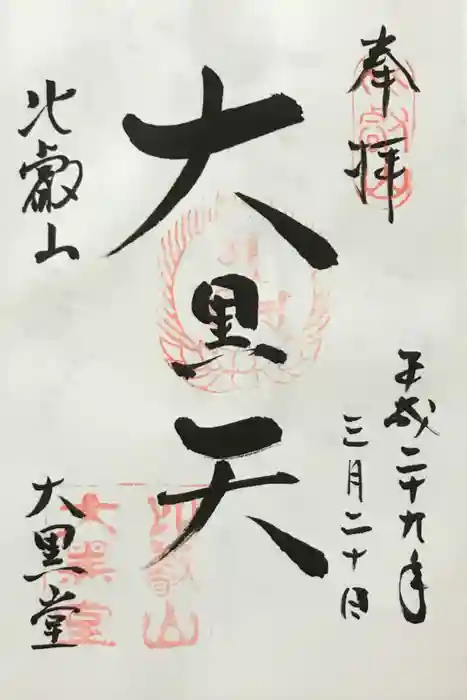 奉拝
平成二十九年
三月二十日
大黒天
比叡山
大黒堂
比叡山
大黒堂